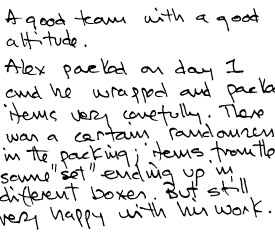 A good team with a good
attitude.
Alex packed on day 1
and he wrapped and packed
items very carefully. There
was a certain randomness
in the packing; items from the
same "set" ending up in
different boxes. But still
very happy with his work.